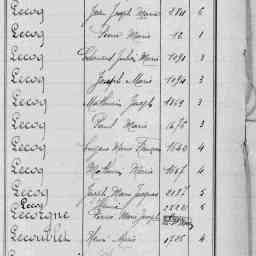 Lecoq Jean Joseph Marie 884 6
Lecoq Pierre Marie 12 1
Lecoq Edouard Julien Marie 1091 3
Lecoq Joseph Marie 1094 3
Lecoq Mathurin Joseph 1869 3
Lecoq Paul Marie 1675 3
Lecoq Marie François 1540 4
Lecoq Mathurin Marie 1667 4
Lecoq Joseph Marie Jacques 2087 5
Lecoq 5
Lecorgne Pierre Marie Joseph
Lecoublet Henri Marie 1705 4